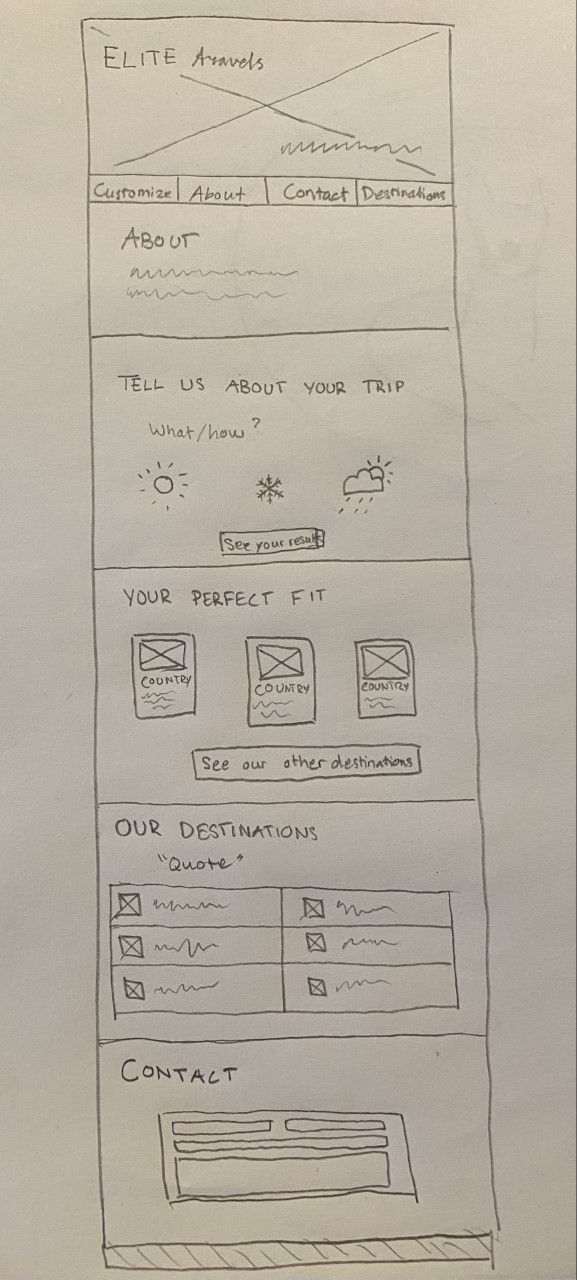 ELITE travels
Customize About Contact Destinations
ABOUT
TELL US ABOUT YOUR TRIP
What/how?
See your results
YOUR PERFECT FIT
COUNTRY COUNTRY COUNTRY
See our other destinations
OUR DESTINATIONS
"Quote"
CONTACT